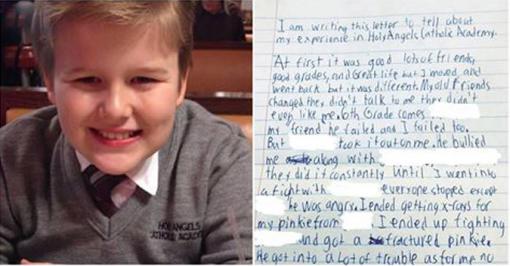 HOLY ANGELS
CATHOLIC ACADEMY
I am writing this letter to tell about
my experience in Holy Angels Catholic Academy.
At first it was good lots of friends,
good grades, and Great life but I moved and
went back but it was different. My old friends
changed they didn't talk to me they didn't
even like me. 6th Grade comes
my friend he failed and I failed too.
But took it out on me he bullied
me along with
they did it constantly Until I went into
a fight with everyone stopped except
he was angry. I ended getting x-rays for
my pinkie from I ended up fighting
and got a fractured pinkie.
He got into a lot of trouble as for me no